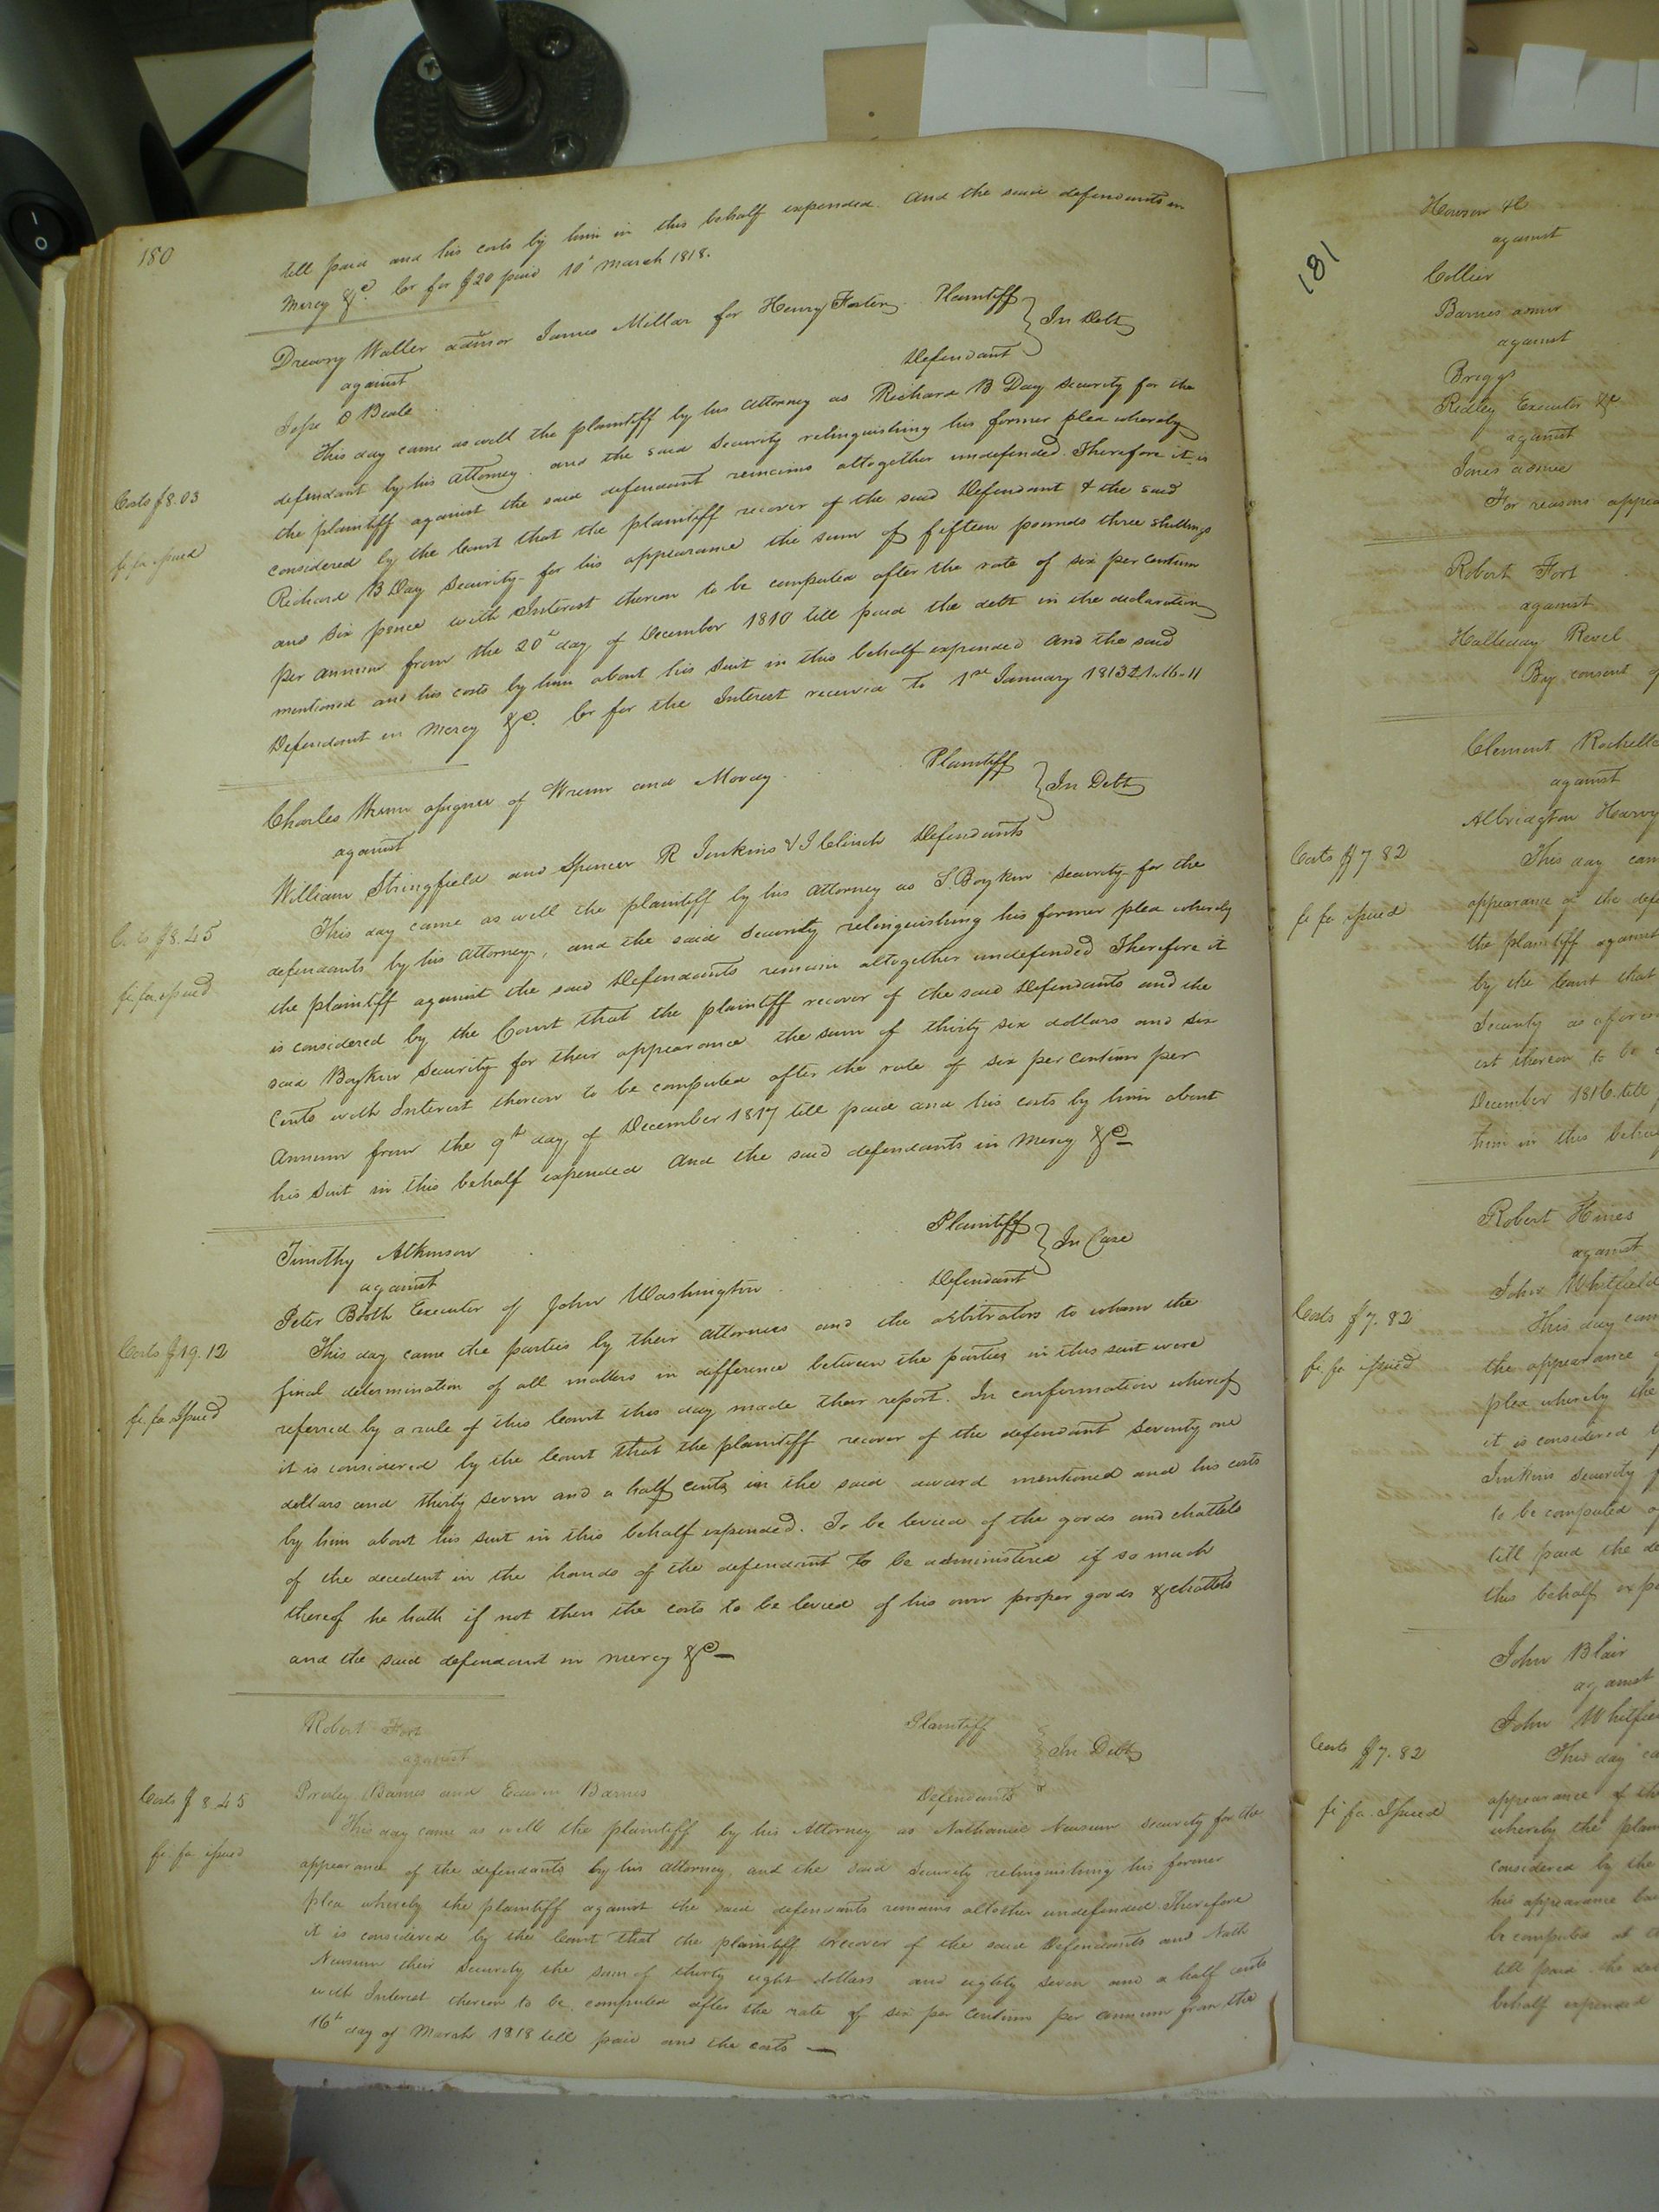 180
till paid and his costs by him in this behalf expended. And the said defendants in
Mercy &c. Cr for $20 paid 10th March 1818.
Drewry Waller admor James Millar for Henry Foster Plaintiff
against } In Debt
Jesse O Beale Defendant
This day came as well the plaintiff by his attorney as Richard B Day Security for the
defendant by his attorney. and the said Security relinquishing his former plea whereby
the plaintiff against the said defendant remains altogether undefended. Therefore it is
considered by the Court that the plaintiff recover of the said Defendant & the said
Costs $8.03
Richard B Day Security for his appearance the sum of fifteen pounds three shillings
fi fa issued
and six pence with Interest thereon to be computed after the rate of six per centum
per annum from the 20th day of December 1810 till paid the debt in the declaration
mentioned and his costs by him about his suit in this behalf expended And the said
Defendant in Mercy &c. Cr for the Interest received to 1st January 1813 £1.16.11
Charles Wrenn assignee of Wrenn and Moody Plaintiff
against } In Debt
William Stringfield and Spencer R Jenkins & J Clinch Defendants
This day came as well the plaintiff by his attorney as S. Boykin security for the
Costs $8.45
defendants by his attorney, and the said Security relinquishing his former plea whereby
the plaintiff against the said Defendants remain altogether undefended Therefore it
fi fa issued
is considered by the Court that the plaintiff recover of the said Defendants and the
said Boykin Security for their appearance the sum of thirty six dollars and six
Cents with Interest thereon to be computed after the rate of six per centum per
Annum from the 9th day of December 1817 till paid and his costs by him about
his suit in this behalf expended And the said defendants in Mercy &c
Timothy Atkinson Plaintiff
against } In Case
Peter Booth Executor of John Washington Defendant
Costs $19.12
This day came the parties by their attornies and the arbitrators to whom the
final determination of all matters in difference between the parties in this suit were
fi. fa. Issued
referred by a rule of this Court this day made their report. In confirmation whereof
it is considered by the Court that the plaintiff recover of the defendant Seventy one
dollars and thirty seven and a half cents in the said award mentioned and his costs
by him about his suit in this behalf expended. To be levied of the goods and chattels
of the decedent in the hands of the defendant to be administered if so much
thereof he hath if not then the costs to be levied of his own proper goods & chattels
and the said defendant in mercy &c
Robert Fort Plaintiff
against } In Debt
Presley Barnes and Edwin Barnes Defendants
Costs $8.45
This day came as well the plaintiff by his Attorney as Nathaniel Newsum security for the
fi fa issued
appearance of the defendants by his attorney and the said Security relinquishing his former
plea whereby the plaintiff against the said defendants remains altother undefended Therefore
it is considered by the Court that the plaintiff recover of the said Defendants and Nath
Newsum their Security the sum of thirty eight dollars and eighty seven and a half cents
with Interest thereon to be computed after the rate of six per Centum per annum from the
16th day of March 1818 till paid and the costs
181
Howson &c
against
Collier
Barnes admor
against
Briggs
Ridley Executor &c
against
Jones admor
For reasons appea
Robert Fort
against
Halleday Revel
By consent of
Clement Rochelle
against
Albridgton Harvy
Costs $7.82
This day cam
fi fa issued
appearance of the defe
the plaintiff against
by the Court that
Security as afores
est thereon to be
December 1816. till
him in this beha
Robert Hines
against
John Whitfield
Costs $7.82
This day cam
fi fa issued
the appearance of
plea whereby the
it is considered
Jenkins security
to be computed of
till paid the de
this behalf expe
John Blair
against
John Whitfie
Costs $7.82
This day ca
fi fa Issued
appearance of the
whereby the plain
considered by the
his appearance
be computed at
till paid the de
behalf expended